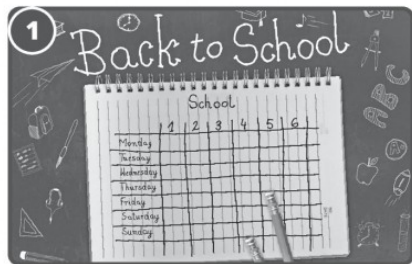 1
Back to School
School
1 2 3 4 5 6
Monday
Tuesday
Wednesday
Thursday
Friday
Saturday
Sunday
ABC
A